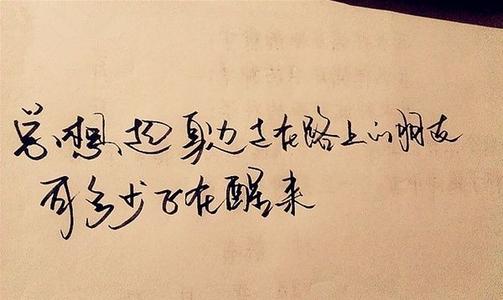 总想起身边走在路上的朋友
有多少正在醒来